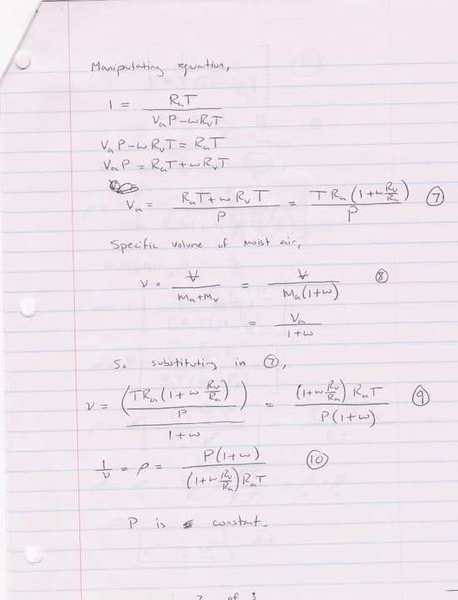 Manipulating equation,
1 = RₐT / (VₐP − ωRᵥT)
VₐP − ωRᵥT = RₐT
VₐP = RₐT + ωRᵥT
Vₐ = (RₐT + ωRᵥT) / P = TRₐ(1 + ω Rᵥ/Rₐ) / P ⑦
Specific volume of moist air,
ν = V / (mₐ + mᵥ) = V / (mₐ(1+ω)) ⑧
= Vₐ / (1+ω)
So substituting in ⑦,
ν = (TRₐ(1 + ω Rᵥ/Rₐ) / P) / (1+ω) = (1 + ω Rᵥ/Rₐ) RₐT / (P(1+ω)) ⑨
1/ν = ρ = P(1+ω) / ((1 + ω Rᵥ/Rₐ) RₐT) ⑩
P is constant.
2 of 3